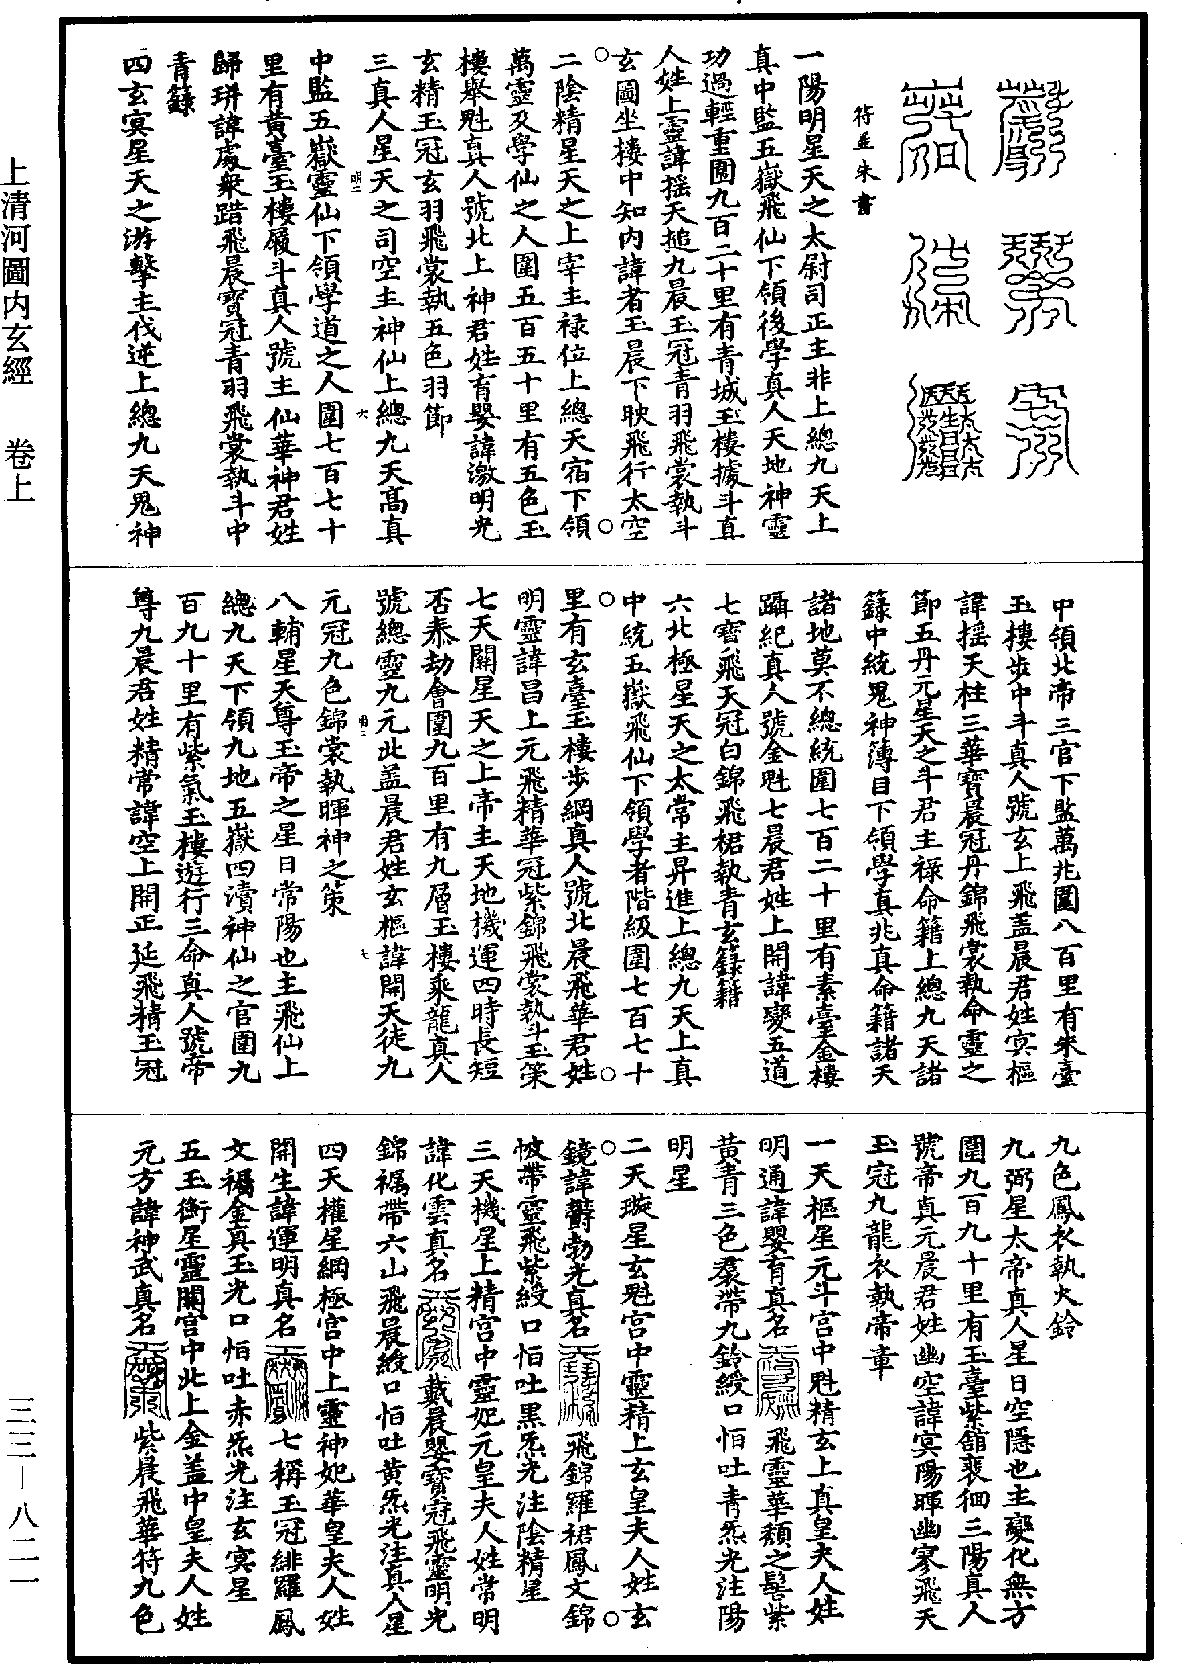 符並朱書
一陽明星天之太尉司正主非上總九天上
真中監五嶽飛仙下領後學真人天地神靈
功過輕重圍九百二十里有青城玉樓據斗真
人姓上靈諱搖天搥九晨玉冠青羽飛裳執斗
玄圖坐樓中知內諱者玉晨下映飛行太空
二陰精星天之上宰主祿位上總天宿下領
萬靈及學仙之人圍五百五十里有五色玉
樓舉魁真人號北上神君姓育嬰諱激明光
玄精玉冠玄羽飛裳執五色羽節
三真人星天之司空主神仙上總九天高真
中監五嶽靈仙下領學道之人圍七百七十
里有黃臺玉樓履斗真人號主仙華神君姓
歸琲諱處衆踏飛晨寶冠青羽飛裳執斗中
青籙
四玄冥星天之游擊主伐逆上總九天鬼神
中領北帝三官下監萬兆圍八百里有朱臺
玉樓步中斗真人號玄上飛蓋晨君姓冥樞
諱搖天柱三華寶晨冠丹錦飛裳執命靈之
節五丹元星天之斗君主祿命籍上總九天諸
籙中統鬼神薄目下領學真兆真命籍諸天
諸地莫不總統圍七百二十里有素臺金樓
躡紀真人號金魁七晨君姓上開諱變五道
七寶飛天冠白錦飛裙執青玄籙籍
六北極星天之太常主昇進上總九天上真
中統五嶽飛仙下領學者階級圍七百七十
里有玄臺玉樓步綱真人號北晨飛華君姓
明靈諱昌上元飛精華冠紫錦飛裳執斗玉策
七天關星天之上帝主天地機運四時長短
否泰劫會圍九百里有九層玉樓乘龍真人
號總靈九元北蓋晨君姓玄樞諱開天徒九
元冠九色錦裳執暉神之策
八輔星天尊玉帝之星日常陽也主飛仙上
總九天下領九地五嶽四瀆神仙之官圍九
百九十里有紫氣玉樓遊行三命真人號帝
尊九晨君姓精常諱空上開正延飛精玉冠
九色鳳衣執火鈴
九弼星太帝真人星日空隱也主變化無方
圍九百九十里有玉臺紫館裴徊三陽真人
號帝真元晨君姓幽空諱冥陽暉幽寥飛天
玉冠九龍衣執帝章
一天樞星元斗宮中魁精玄上真皇夫人姓
明通諱嬰育真名飛靈華頹之髻紫
黃青三色羣帶九鈴綬口恒吐青炁光注陽
明星
二天璇星玄魁宮中靈精上玄皇夫人姓玄
鏡諱鬱勃光真名飛錦羅裙鳳文錦
帔帶靈飛紫綬口恒吐黑炁光注陰精星
三天機星上精宮中靈妃元皇夫人姓常明
諱化雲真名戴晨嬰寶冠飛靈明光
錦褐帶六山飛晨綬口恒吐黃炁光注真人星
四天權星綱極宮中上靈神妃華皇夫人姓
開生諱運明真名七稱玉冠緋羅鳳
文褐金真玉光口恒吐赤炁光注玄冥星
五玉衡星靈關宮中北上金蓋中皇夫人姓
元方諱神武真名紫晨飛華符九色
上清河圖内玄經　卷上
三三—八二一